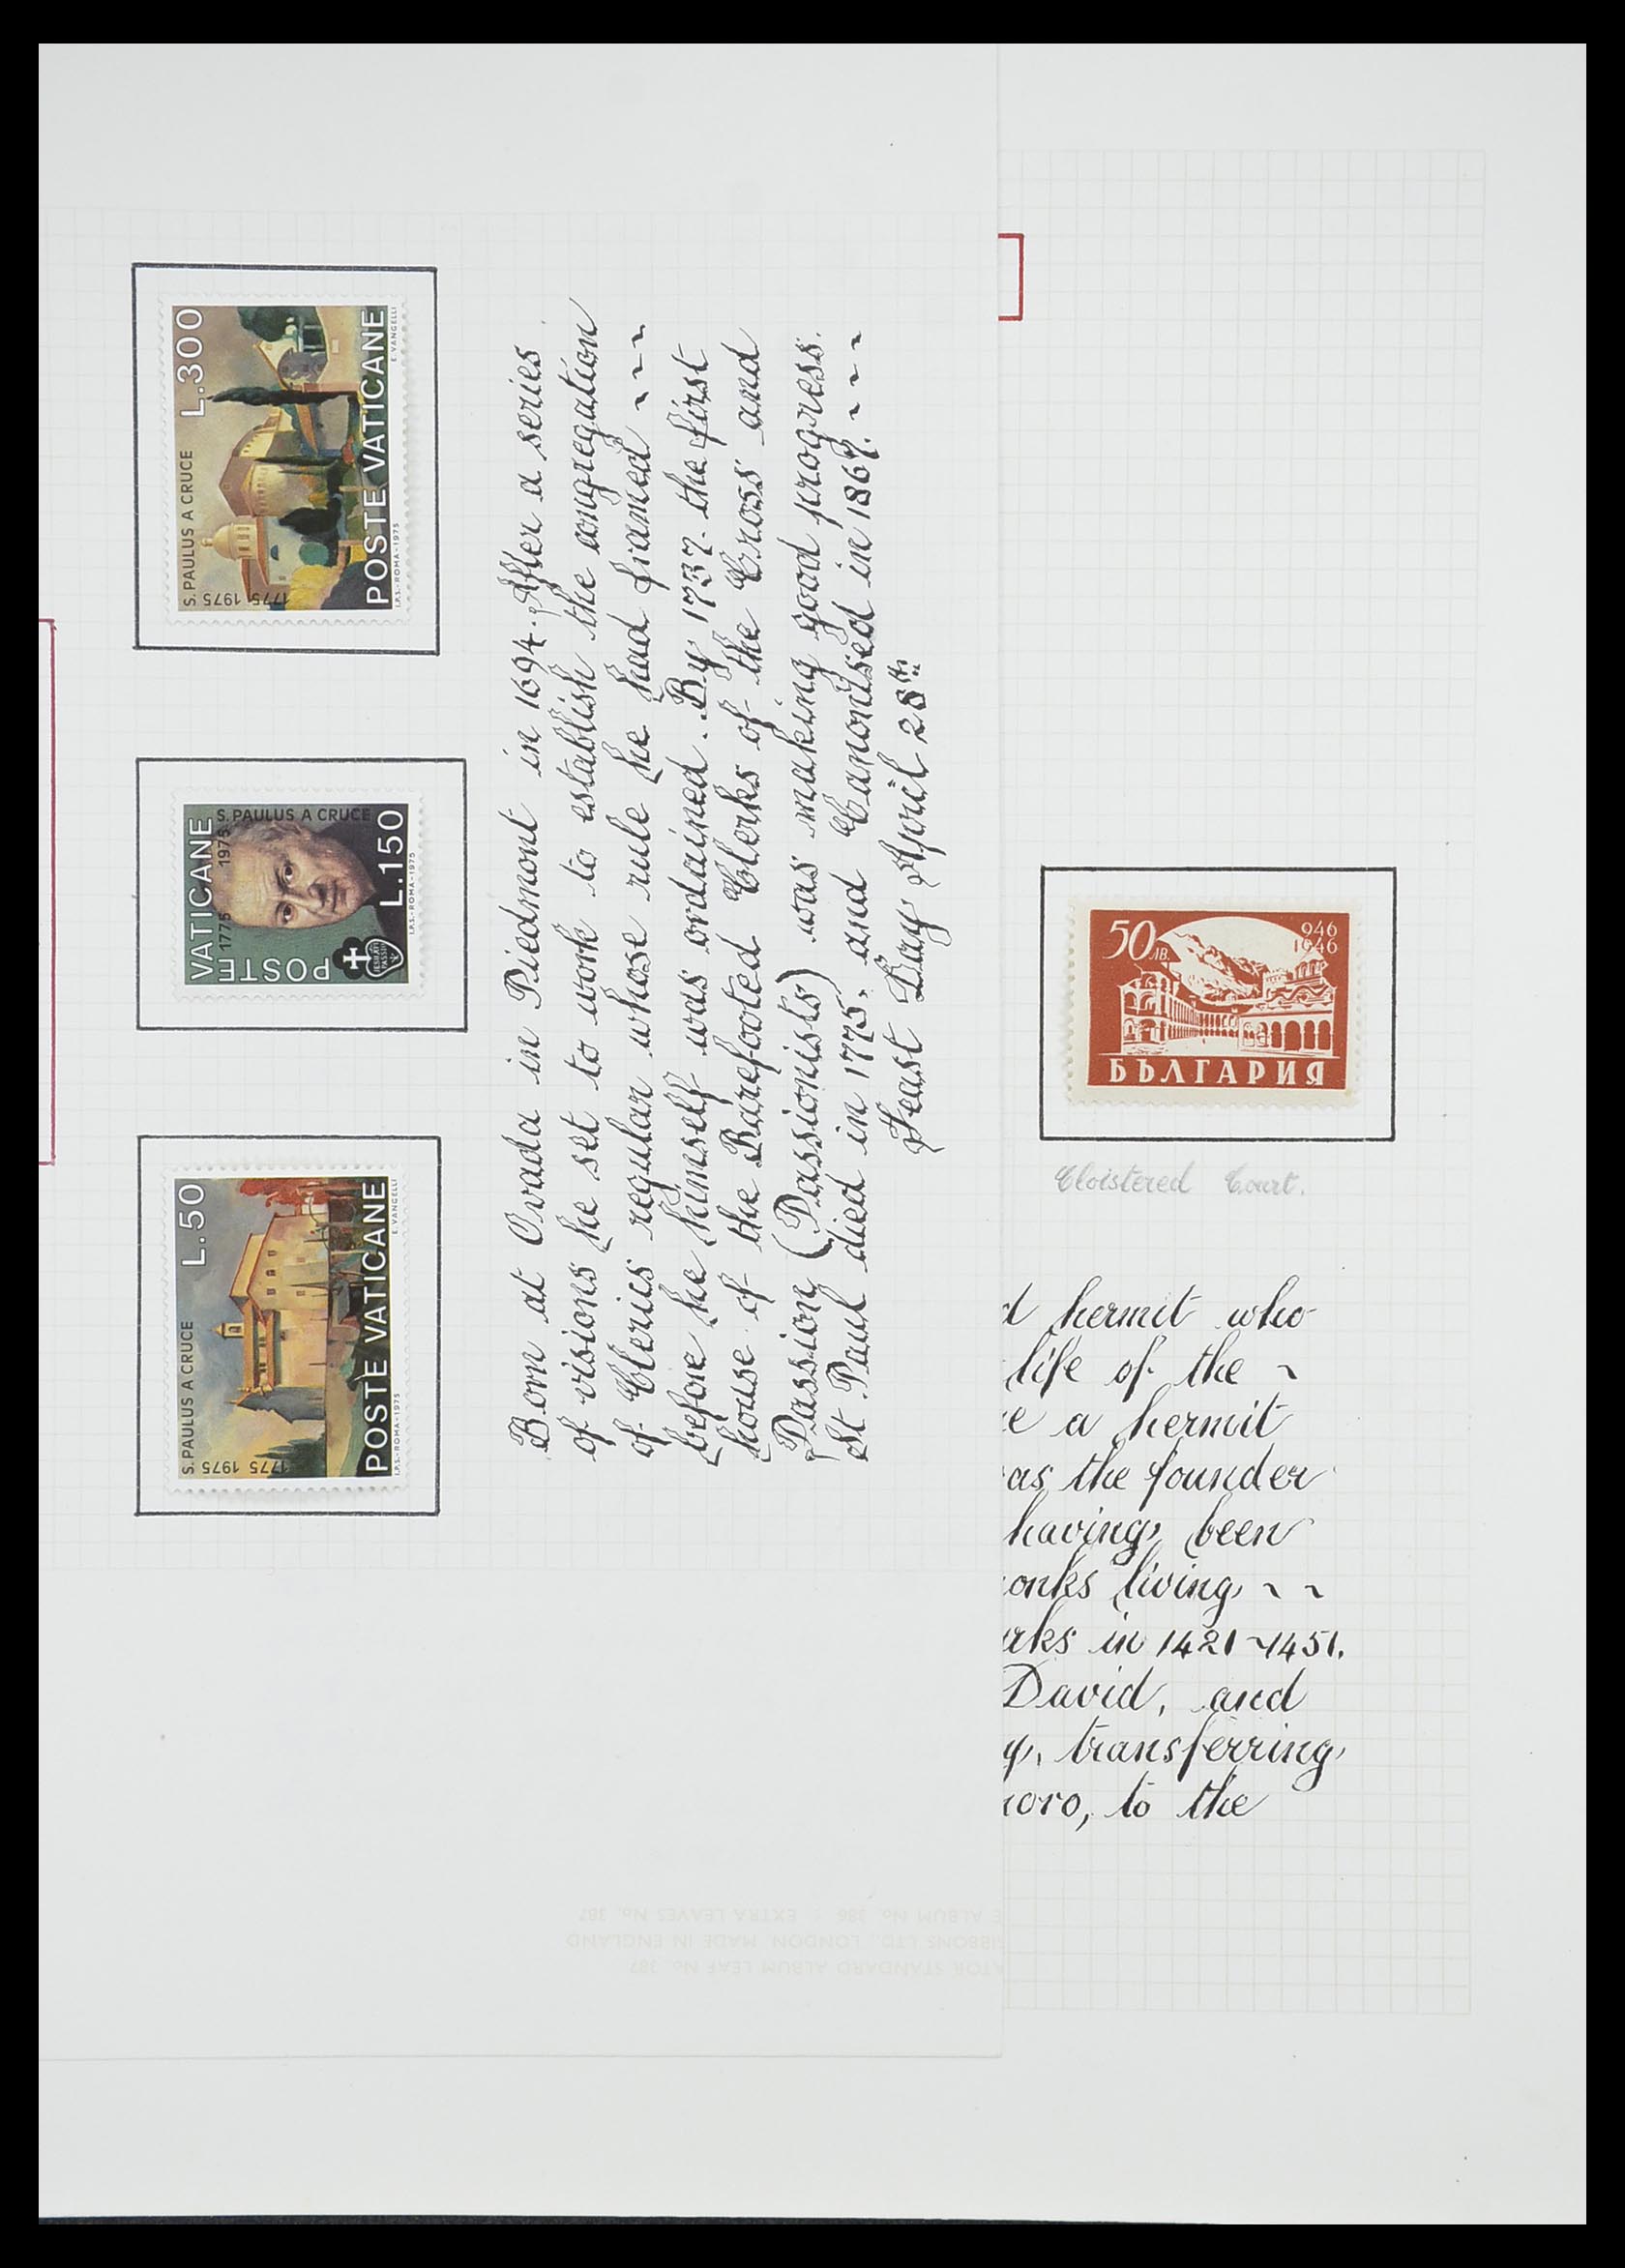 S. PAULUS A CRUCE
L.50
1775 1975
POSTE VATICANE
I.P.S.-ROMA-1975
E. VANGELLI
POSTE VATICANE
1775 1975
S. PAULUS A CRUCE
L.150
I.P.S.-ROMA-1975
S. PAULUS A CRUCE
L.300
1775 1975
POSTE VATICANE
I.P.S.-ROMA-1975
E. VANGELLI
Born at Ovada in Piedmont in 1694. After a series
of visions he set to work to establish the congregation
of Clerics regular whose rule he had framed ~ ~
before he himself was ordained. By 1737 the first
house of the Barefooted Clerks of the Cross and
Passion (Passionists) was making good progress.
St. Paul died in 1775, and Canonised in 1867. ~ ~ ~
Feast Day April 28th
50 ЛВ.
946
1946
БЪЛГАРИЯ
Cloistered Court.
d hermit who
life of the ~
e a hermit
as the founder
having been
onks living ~ ~
rks in 1421~1451.
David, and
y, transferring
noro, to the
E ALBUM No. 386 : EXTRA LEAVES No. 387
IBBONS LTD. LONDON MADE IN ENGLAND
ATOR STANDARD ALBUM LEAF No. 387